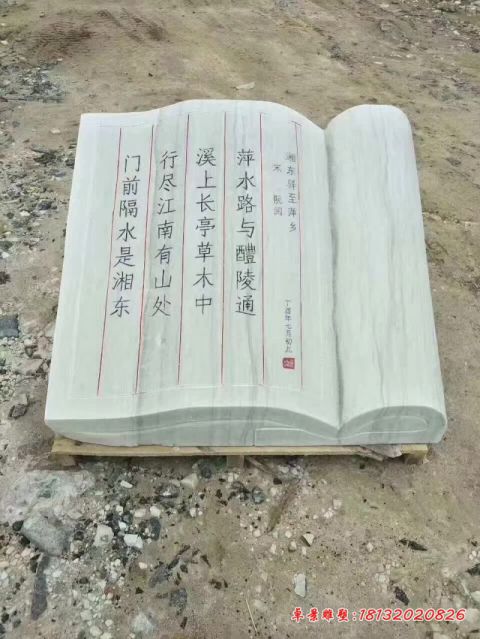 湘东驿至萍乡
宋 阮阅
萍水路与醴陵通
溪上长亭草木中
行尽江南有山处
门前隔水是湘东
丁酉年七月初九
卓景雕塑:18132020826